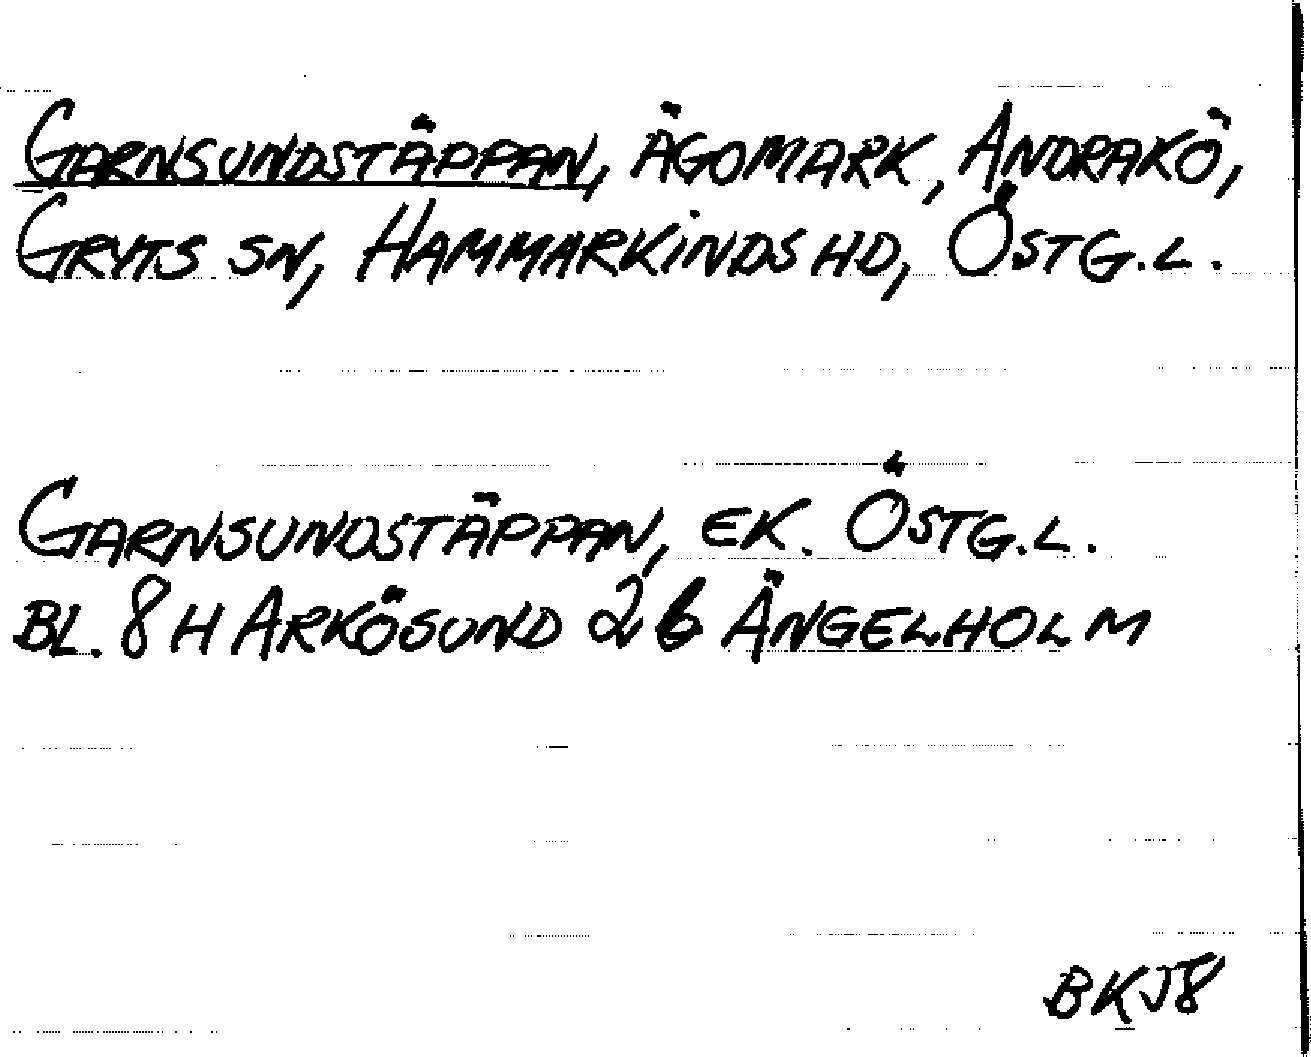 GARNSUNDSTÄPPAN, ÄGOMARK, ANDRAKÖ,
GRYTS SN, HAMMARKINDS HD, ÖSTG.L.
GARNSUNDSTÄPPAN, EK. ÖSTG.L.
BL. 8 H ARKÖSUND 2 b ÄNGELHOLM
BKJ8